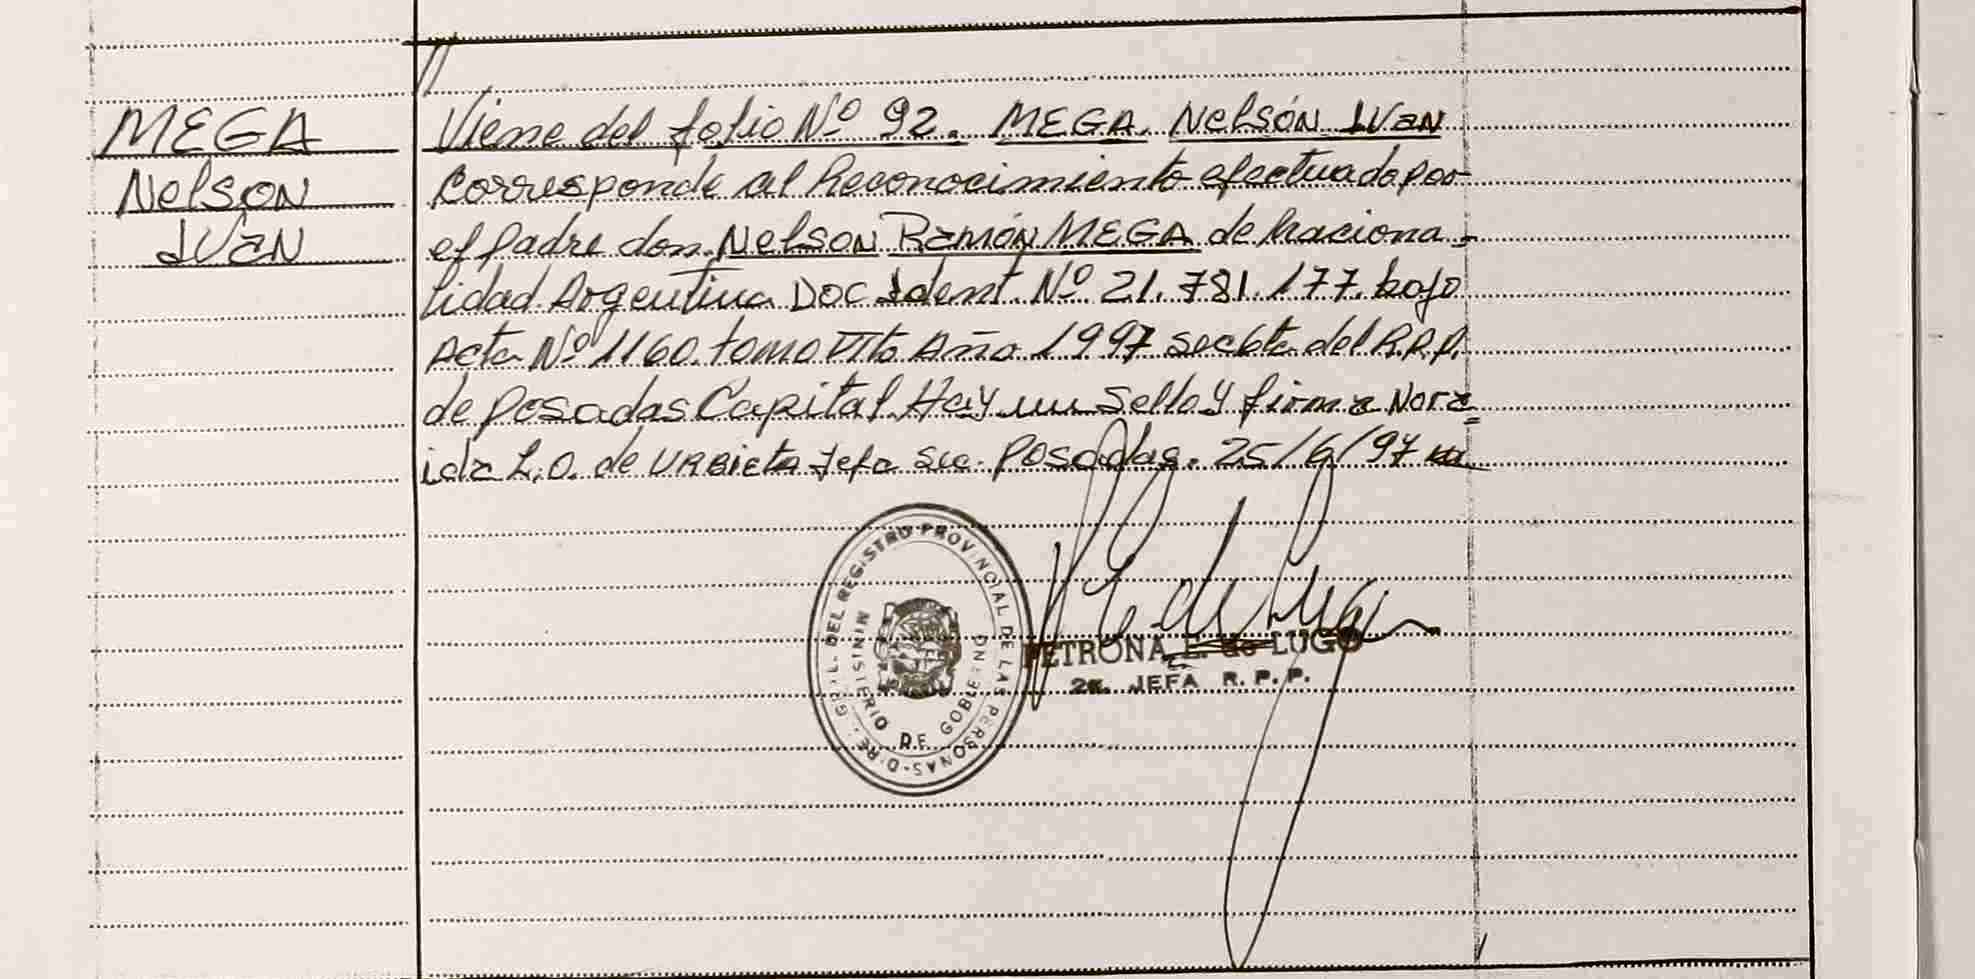 MEGA
Nelson
IVan
//
Viene del folio Nº 92. MEGA, Nelsón IVan
Corresponde al Reconocimiento efectuado por
el Padre don Nelson Ramón MEGA de Naciona-
lidad Argentina Doc Ident. Nº 21.781.177. bajo
Acta Nº 1160. tomo VIto Año 1997 del R.P.P.
de Posadas Capital. Hay un Sello y firma Nora
ida L.O. de URBieta Jefa Sec. Posadas. 25/6/97
GRAL. DEL REGISTRO PROVINCIAL DE LAS PERSONAS-DIRE.
MINISTERIO DE GOBIERNO
PETRONA E. de LUGO
2a. JEFA R. P. P.